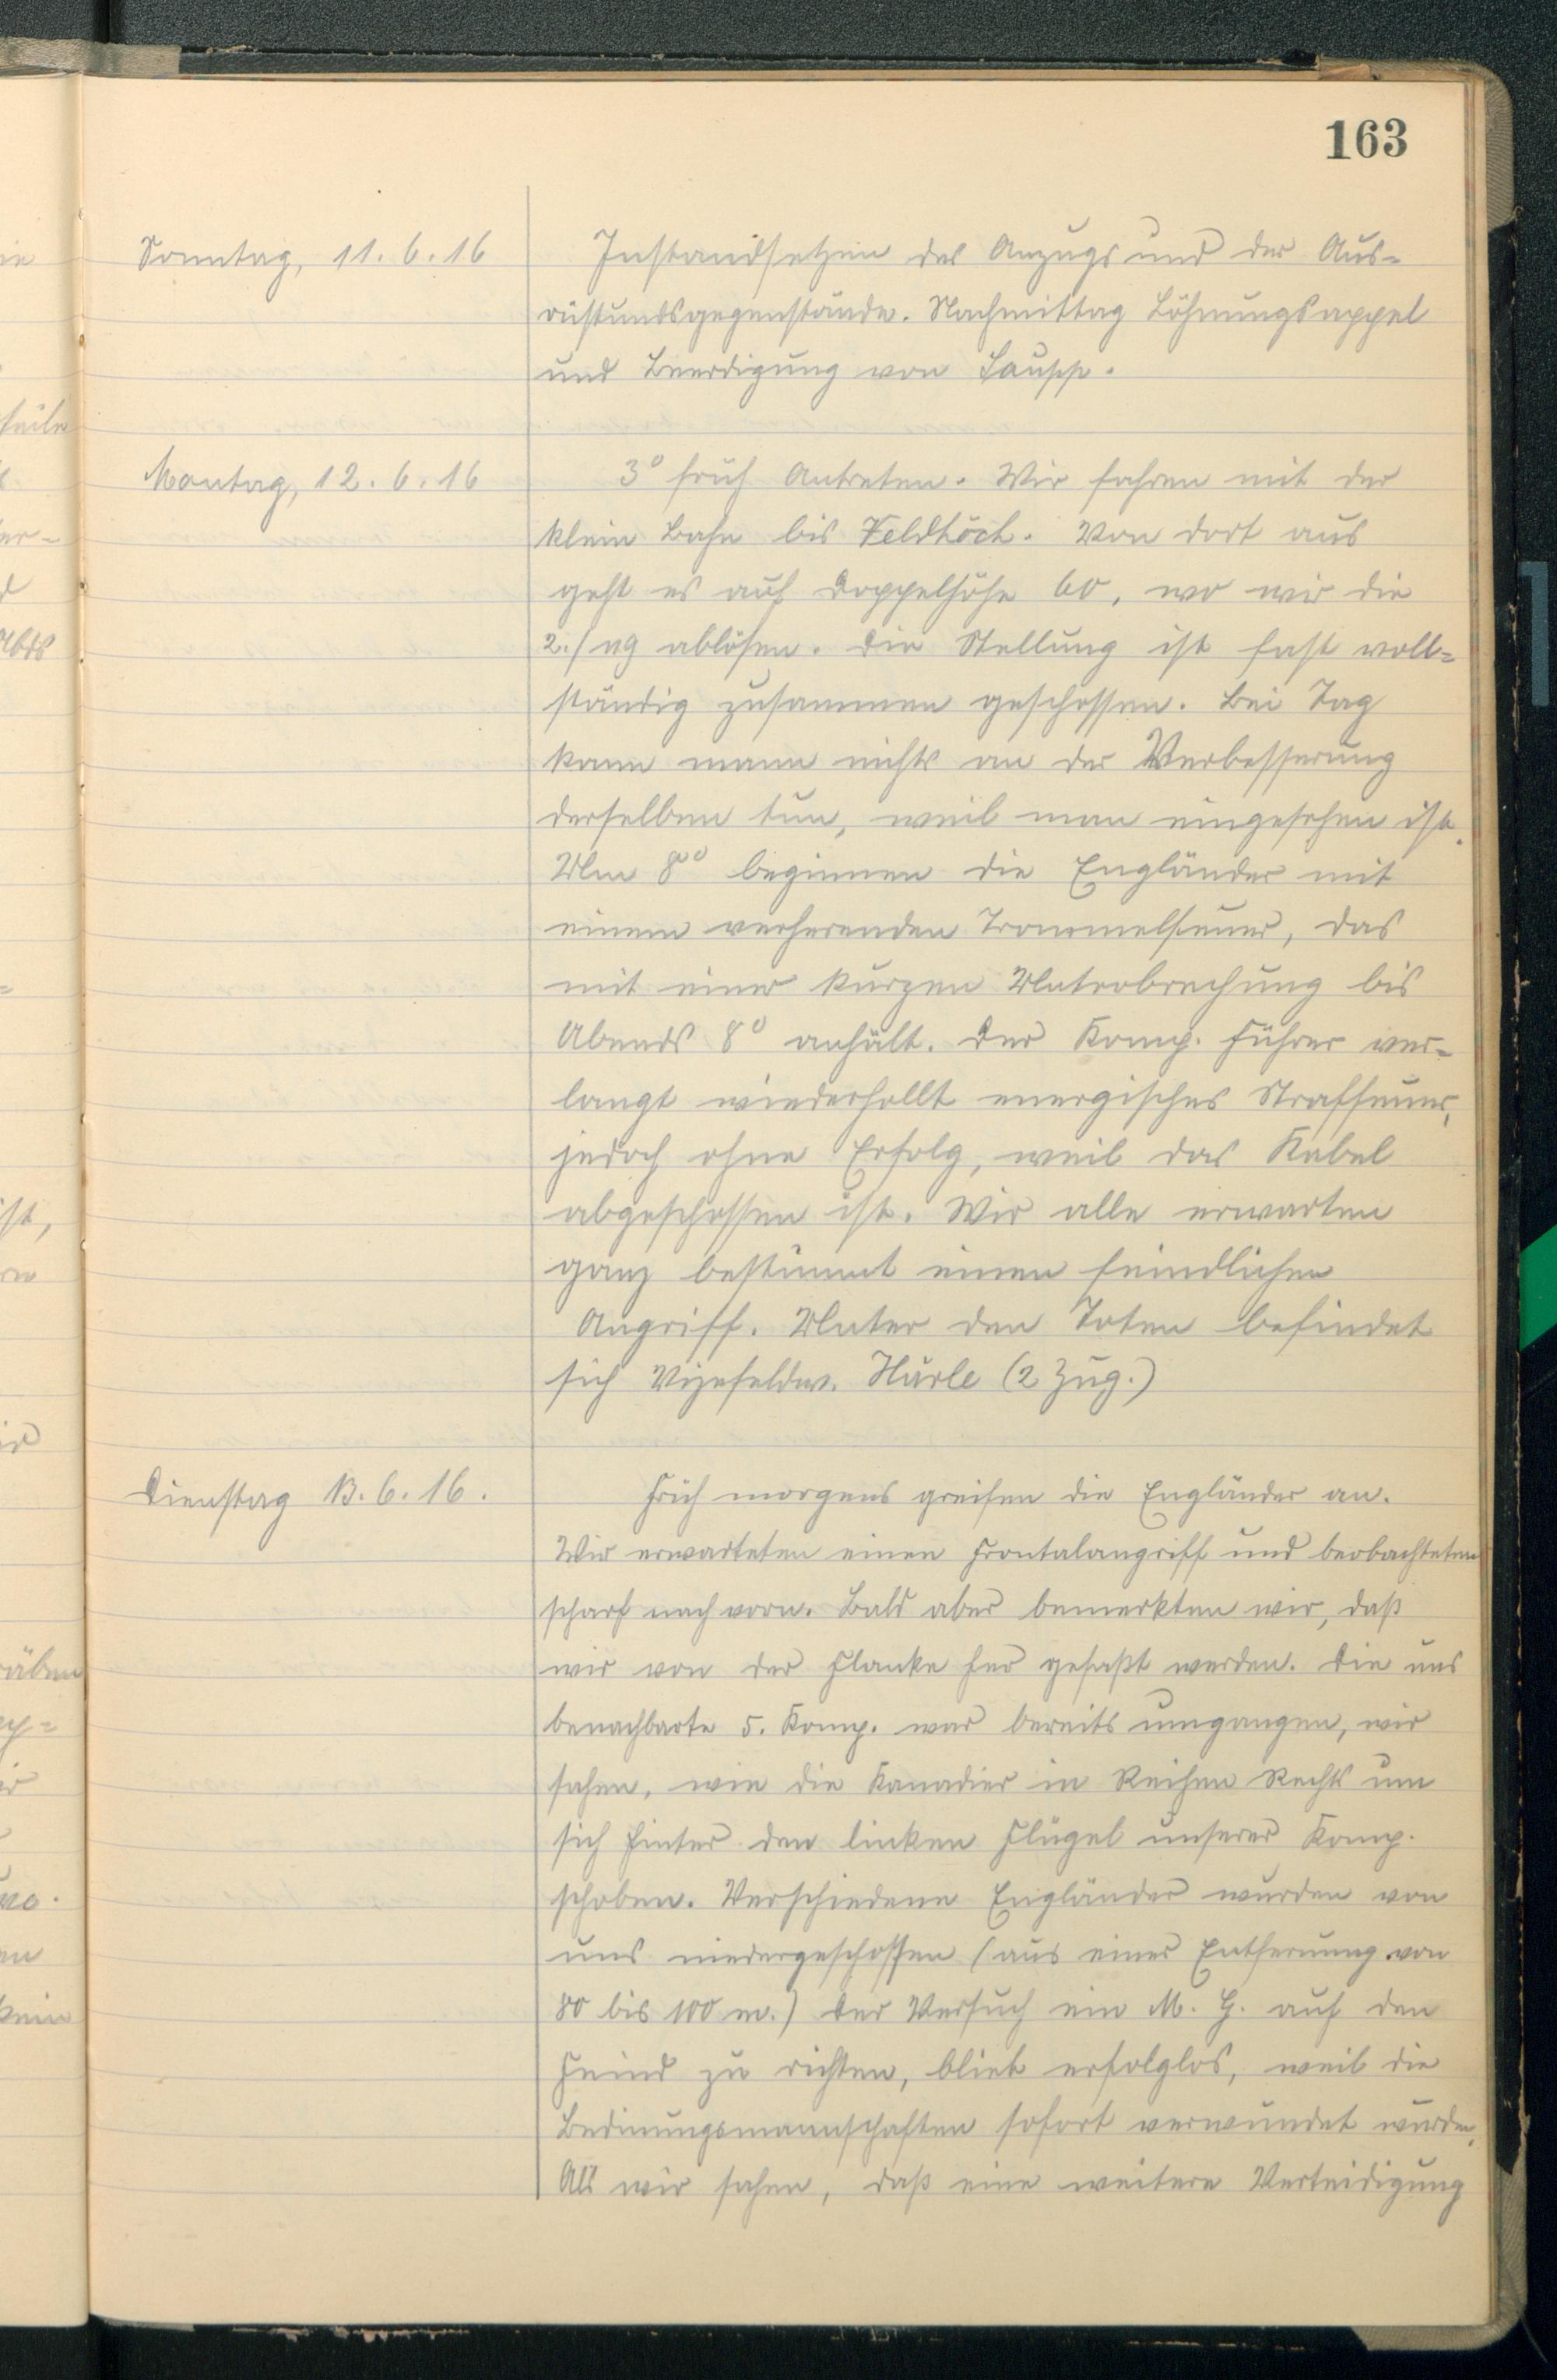 163
Sonntag, 11. 6. 16
Instandsetzen des Anzugs und der Aus-
rüstundsgegenstände. Nachmittag Löhnungsappel
und Beerdigung von Laupp.
Montag, 12. 6. 16
3° früh Antreten. Wir fahren mit der
klein Bahn bis Veldhöck. Von dort aus
geht es auf Doppelhöhe 60, wo wir die
2./119 ablösen. Die Stellung ist fast voll-
ständig zusammen geschossen. Bei Tag
kann mann nichts an der Verbesserung
derselben tun, weil man eingesehen ist.
Um 8°° beginnen die Engländer mit
einem verherenden Trommelfeuer, das
mit einer kurzen Unterbrechung bis
Abends 8° anhält. Der Komp. Führer ver-
langt wiederhollt energisches Straffeuer,
jedoch ohne Erfolg, weil das Kabel
abgeschossen ist. Wir alle erwarten
ganz bestimmt einen feindlichen
Angriff. Unter den Toten befindet
sich Vizefeldw. Härle (2 Zug.)
Dienstag 13. 6. 16.
Früh morgens greifen die Engländer an.
Wir erwarteten einen Frontalangriff und beobachteten
scharf nach vorn. Bald aber bemerkten wir, daß
wir von der Flanke her gefaßt werden. Die uns
benachbarte 5. Komp. war bereits umgangen, wir
sahen, wie die Kanadier in Reihen Rechts um
sich hinter den linken Flügel unserer Komp.
schoben. Verschiedene Engländer wurden von
uns niedergeschossen (aus einer Entfernung von
80 bis 100 m.) Der Versuch ein M. G. auf den
Feind zu richten, bliet erfolglos, weil die
Bedinungsmannschaften sofort verwundet wurden.
Als wir sahen, daß eine weitere Verteidigung